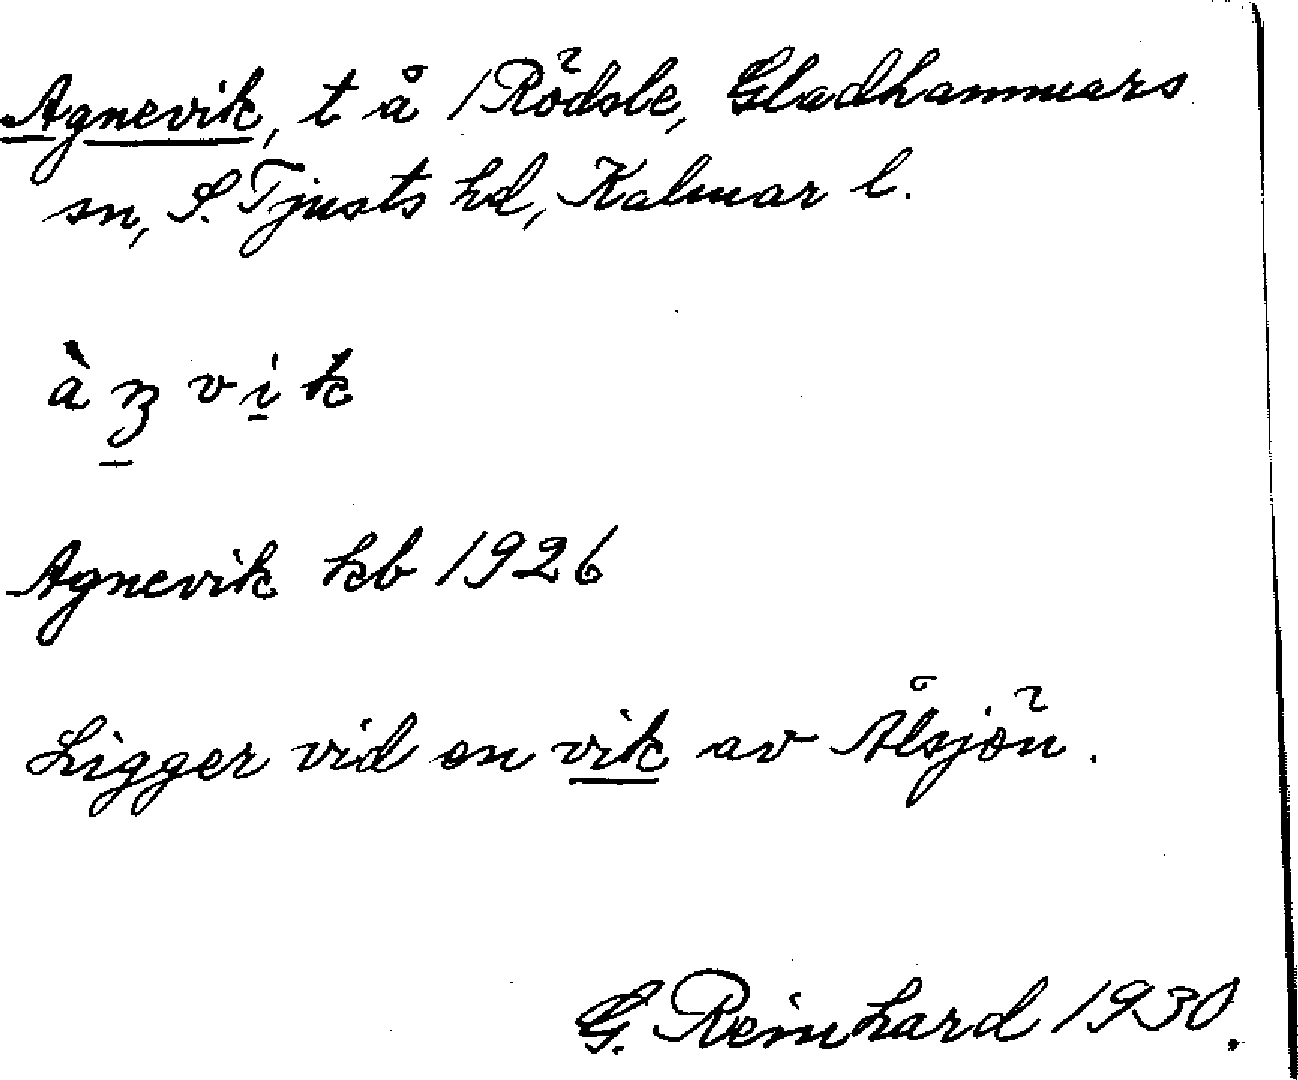 Agnevik, t å /Rödsle, Gladhammars
sn, S. Tjusts hd, Kalmar l.
àŋvik
Agnevik kb 1926
Ligger vid en vik av Ålsjön.
G. Reinhard 1930.